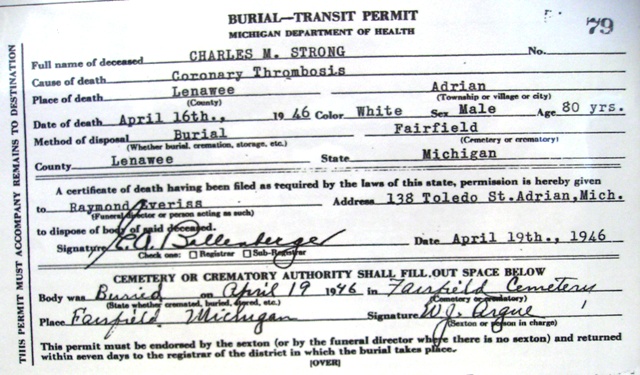 BURIAL—TRANSIT PERMIT
79
MICHIGAN DEPARTMENT OF HEALTH
THIS PERMIT MUST ACCOMPANY REMAINS TO DESTINATION
Full name of deceased CHARLES M. STRONG No.
Cause of death Coronary Thrombosis
Place of death Lenawee Adrian
(County) (Township or village or city)
Date of death April 16th., 1946 Color White Sex Male Age 80 yrs.
Method of disposal Burial Fairfield
(Whether burial, cremation, storage, etc.) (Cemetery or crematory)
County Lenawee State Michigan
A certificate of death having been filed as required by the laws of this state, permission is hereby given
to Raymond Everiss Address 138 Toledo St.Adrian,Mich.
(Funeral director or person acting as such)
to dispose of body of said deceased.
Signature Ballenberger Date April 19th., 1946
Check one: Registrar Sub-Registrar
CEMETERY OR CREMATORY AUTHORITY SHALL FILL OUT SPACE BELOW
Body was Buried on April 19 1946 in Fairfield Cemetery
(State whether cremated, buried, stored, etc.) (Cemetery or crematory)
Place Fairfield Michigan Signature W.J. Argue
(Sexton or person in charge)
This permit must be endorsed by the sexton (or by the funeral director where there is no sexton) and returned
within seven days to the registrar of the district in which the burial takes place.
[OVER]